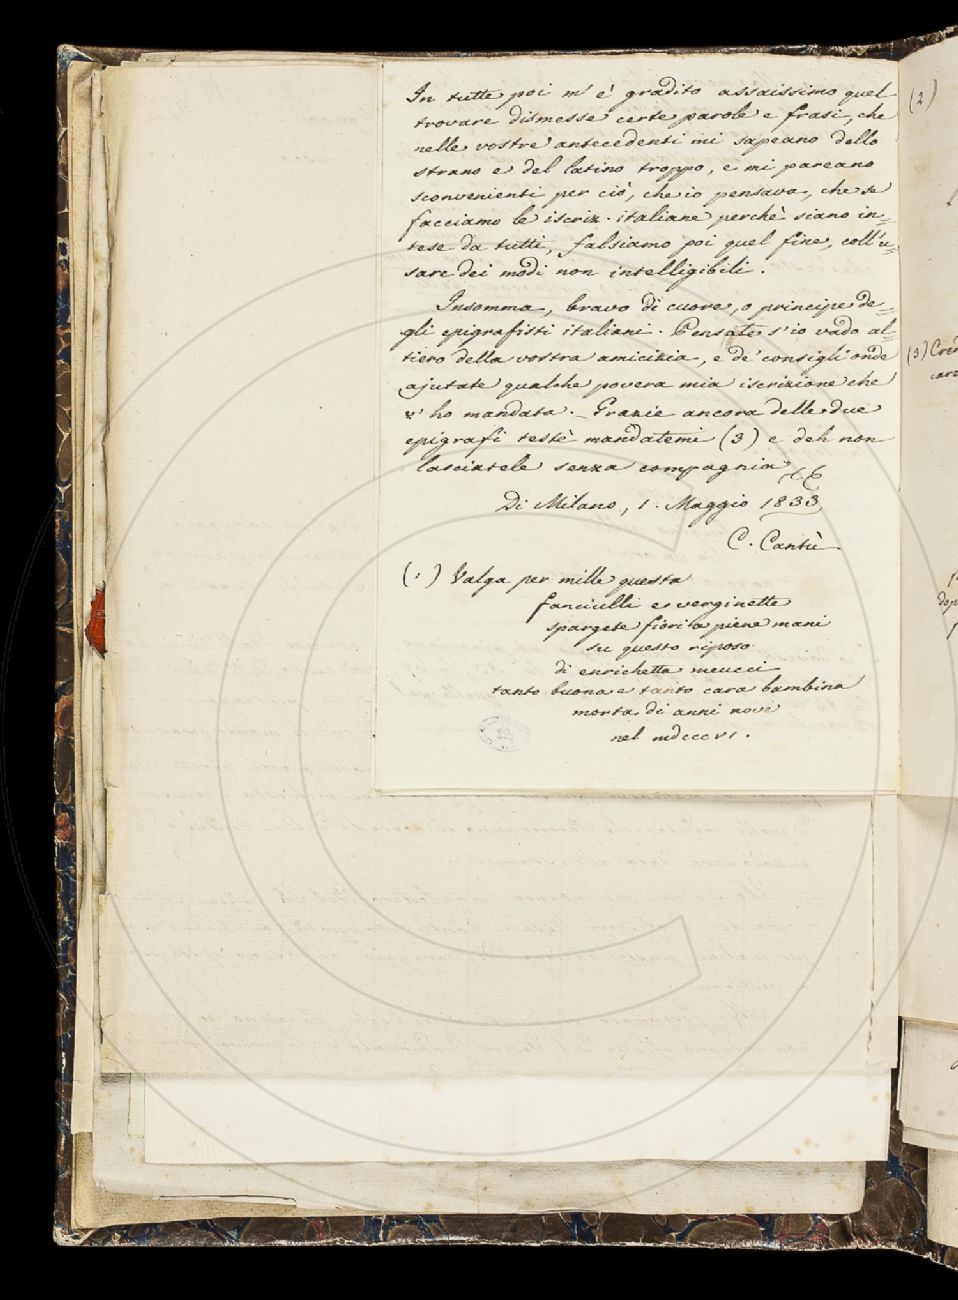 In tutte poi m'è gradito assaissimo quel
trovare dismesse certe parole e frasi, che
nelle vostre antecedenti mi sapeano dello
strano e del latino troppo, e mi pareano
sconvenienti per ciò, che io pensava, che se
facciamo le iscriz. italiane perchè siano in=
tese da tutti, falsiamo poi quel fine, coll'u=
sare dei modi non intelligibili.
Insomma, bravo di cuore, o principe de=
gli epigrafisti italiani. Pensate s'io vado al=
tiero della vostra amicizia, e de' consigli onde
ajutate qualche povera mia iscrizione che
v'ho mandata. _ Grazie ancora delle due
epigrafi testè mandatemi (3) e deh non
lasciatele senza compagnia
Di Milano, 1. Maggio 1833
C. Cantù.
(1) Valga per mille questa
fanciulli e verginette
spargete fiori a piene mani
su questo riposo
di enrichetta meucci
tanto buona e tanto cara bambina
morta di anni nove
nel mdcccvi.
(2)
(3) Cred